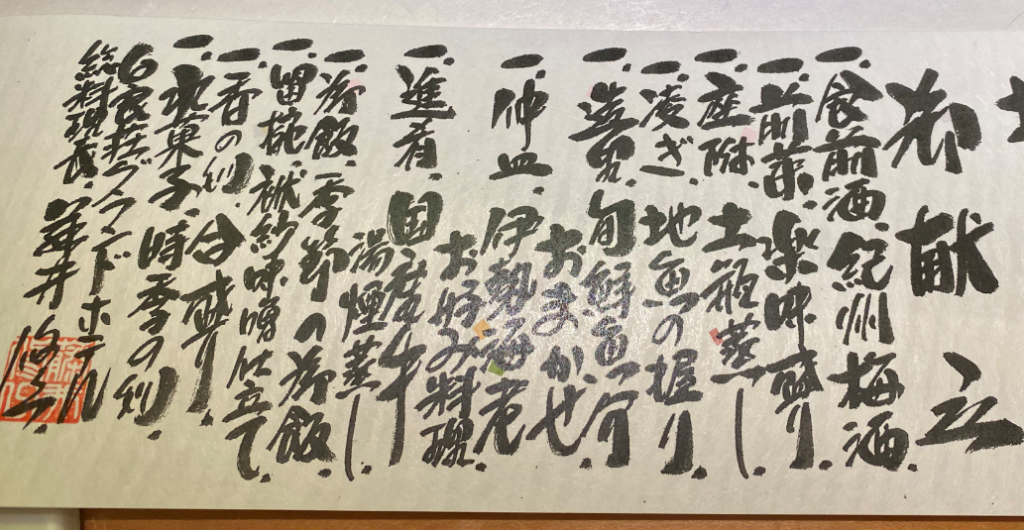 御献立
一.食前酒.紀州梅酒.
一.前菜.楽味盛り.
一.座附.土瓶蒸し.
一.凌ぎ.地魚の握り.
一.造里.旬鮮魚
おまかせ.
一.仲皿.伊勢海老
お好み料理.
一.進肴.国産牛
湯煙蒸し.
一.御飯.季節の御飯.
一.留椀.袱紗味噌仕立て.
一.香の物.合盛り.
一.水菓子.時季の物.
グランドホテル
総料理長.